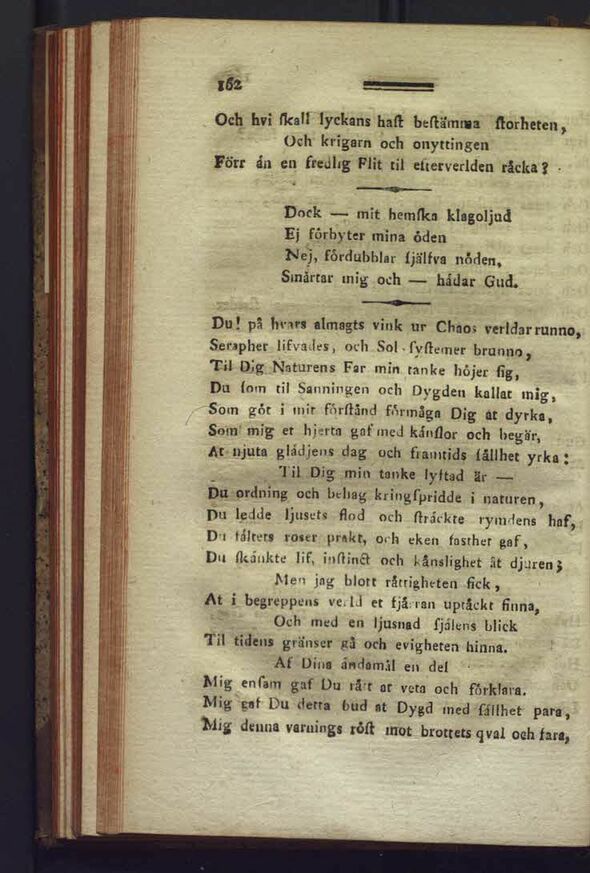 162
Och hvi ſkall lyckans haſt beſtämma ſtorheten,
Och krigarn och onyttingen
Förr än en fredlig Flit til efterverlden råcka?
Dock — mit hemſka klagoljud
Ej förbyter mina öden
Nej, fördubblar ſjälfva nöden,
Smärtar mig och — hädar Gud.
Du! på hvars almagts vink ur Chaos verldar runno,
Serapher lifvades, och Sol-ſyſtemer brunno,
Til Dig Naturens Far min tanke höjer ſig,
Du ſom til Sanningen och Dygden kallat mig,
Som göt i mit förſtånd förmåga Dig at dyrka,
Som mig et hjerta gaf med känſlor och begär,
At njuta glädjens dag och framtids ſällhet yrka:
Til Dig min tanke lyftad är —
Du ordning och behag kringſpridde i naturen,
Du ledde ljusets flod och ſträckte rymdens haf,
Du fältets roser prakt, och eken faſthet gaf,
Du ſkänkte lif, inſtinct och känslighet åt djuren;
Men jag blott rättigheten fick,
At i begreppens verld et fjärran uptäckt finna,
Och med en ljusnad ſjälens blick
Til tidens gränser gå och evigheten hinna.
Af Dina ändamål en del
Mig enſam gaf Du rätt at veta och förklara.
Mig gaf Du detta bud at Dygd med ſällhet para,
Mig denna varnings röſt mot brottets qval och fara,